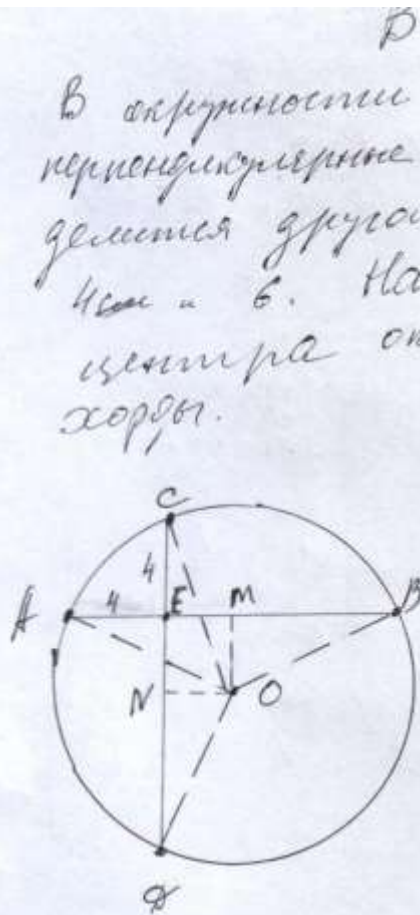 В окружности
перпендикулярные
делится другой
4 см и 6. На
центра ок
хорды.
C
4
A 4 E M B
N O
D